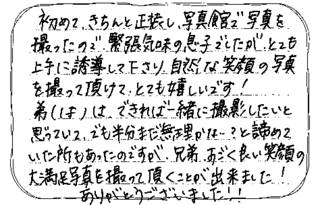 初めて、きちんと正装し、写真館で写真を
撮ったので緊張気味の息子でしたが、とても
上手に誘導して下さり、自然な笑顔の写真
を撮って頂けて、とても嬉しいです!
弟(は)は、できれば一緒に撮影したいと
思っていて、でも半分まだ無理かな…?と諦めて
いた所もあったのですが、兄弟、すごく良い笑顔の
大満足写真を撮って頂くことが出来ました!
ありがとうございました!!